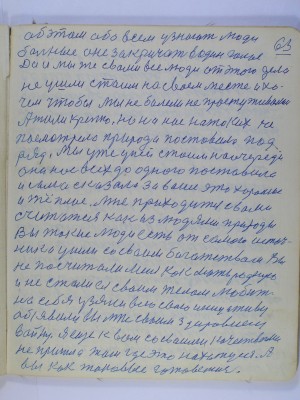 об этом обо всем узнают люди
63
больше они закричат в один голос
Да и мы же с вами все люди от этого дела
не ушли стоим на своем месте и хо-
чем чтобы мы не болели не простуживались
А жили крепко, но на нас на таких не
посмотрела природа поставила под
ряд. Мы уже у ней стоим на очереди
она нас всех до одного поставила
и сама сказала за ваше это хорошее
и тёплое. Мне приходится с вами
считаться как из людями природы
Вы такие люди есть от самого источ-
ника ушли со своим богатством Вы
не посчитали меня как
и не стали за своим телом
на себя узяли всю свою инициативу
объявили вы мне своим здоровьем
войну. Я еще к вам со своими качествами
не пришла там где это находится. А
вы как таковые готовились.